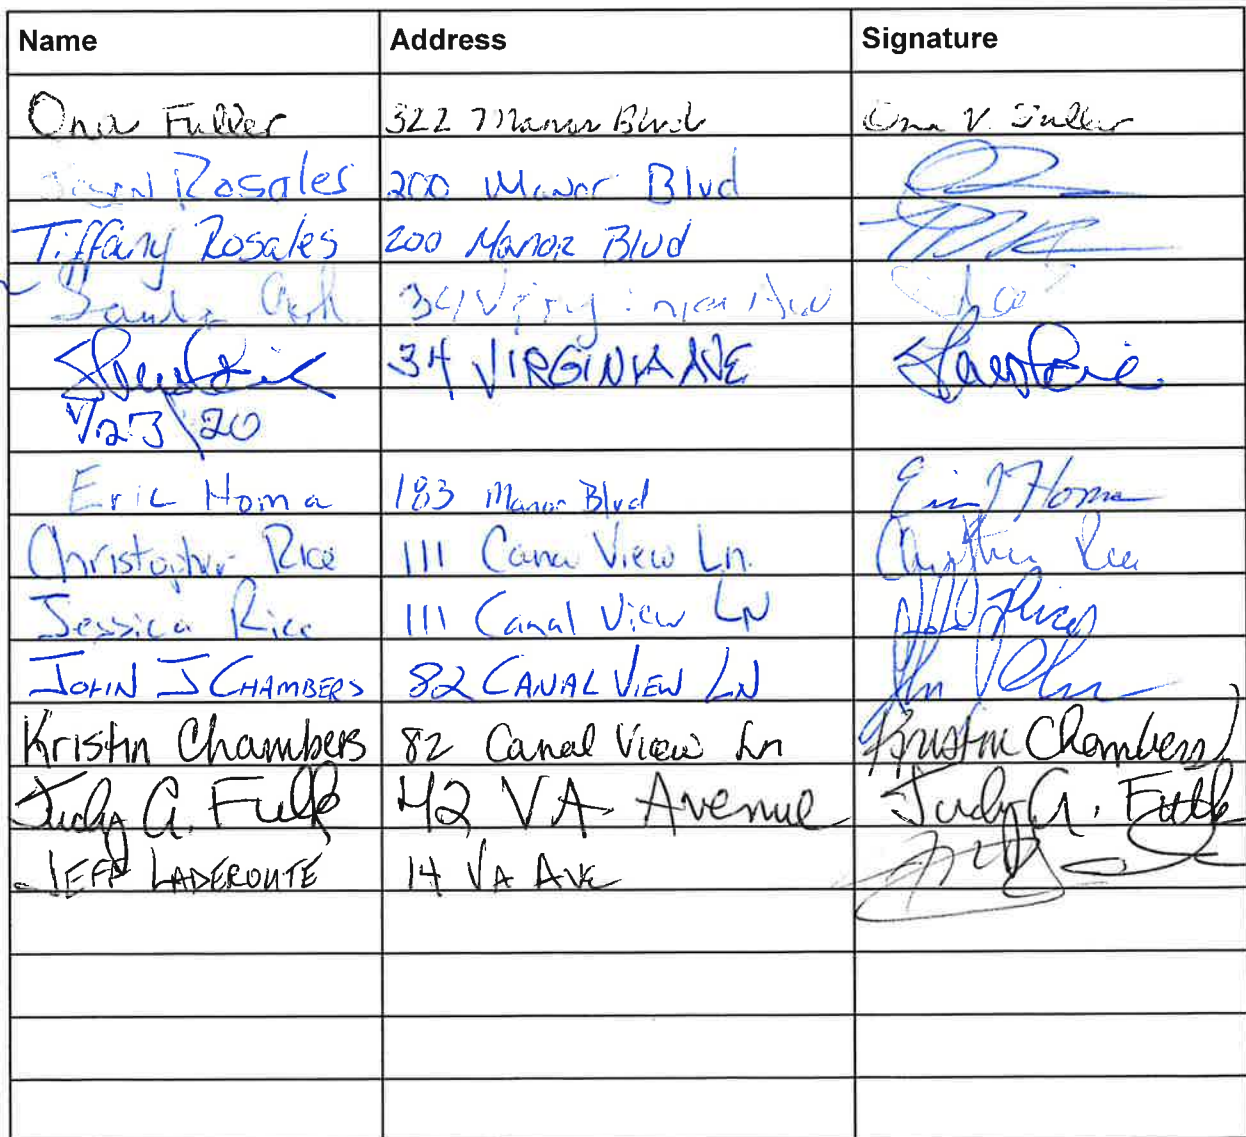 Name Address Signature
Ona Fuller 322 Manor Blvd Ona V. Fuller
Rosales 200 Manor Blvd
Tiffany Rosales 200 Manor Blvd
34 Virginia Ave
34 VIRGINIA AVE
1/23/20
Eric Homa 183 Manor Blvd Eric J Homa
Christopher Rice 111 Canal View Ln. Christopher Rice
Jessica Rice 111 Canal View LN
JOHN J CHAMBERS 82 CANAL VIEW LN
Kristin Chambers 82 Canal View Ln Kristin Chambers
Judy A. Fulk 42 VA. Avenue Judy A. Fulk
JEFF LADEROUTE 14 VA AVE